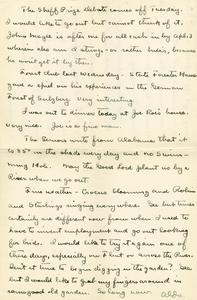 The Shaff Prize Debate comes off Tuesday.
I would like to go out but cannot think of it.
John Magee is after me for all cash in by Apl. 3
wherein also am I stung, - or rather he is, because
he won't get it by then.
Frost due last Wednesday - State Forester Hawes
gave a spiel on his experiences in the German
Forest of Salzburg. Very interesting
I was out to dinner today at Joe Roi's house.
Very nice. Joe is a fine man.
The Seniors write from Alabama that it
is 85° in the shade every day and no Swim-
ming Hole. May the Good Lord plant us by a
River when we go out.
Fine weather - Crocus blooming and Robins
and Starlings singing every where. Gee but times
certainly are different now from when I used to
have to invent employment and go out looking
for birds. I would like to try it again one of
these days, especially over E Pat or across the River.
Isn't it time to begin digging in the garden? Gee
but I would like to get my fingers around in
some good old garden. So long now